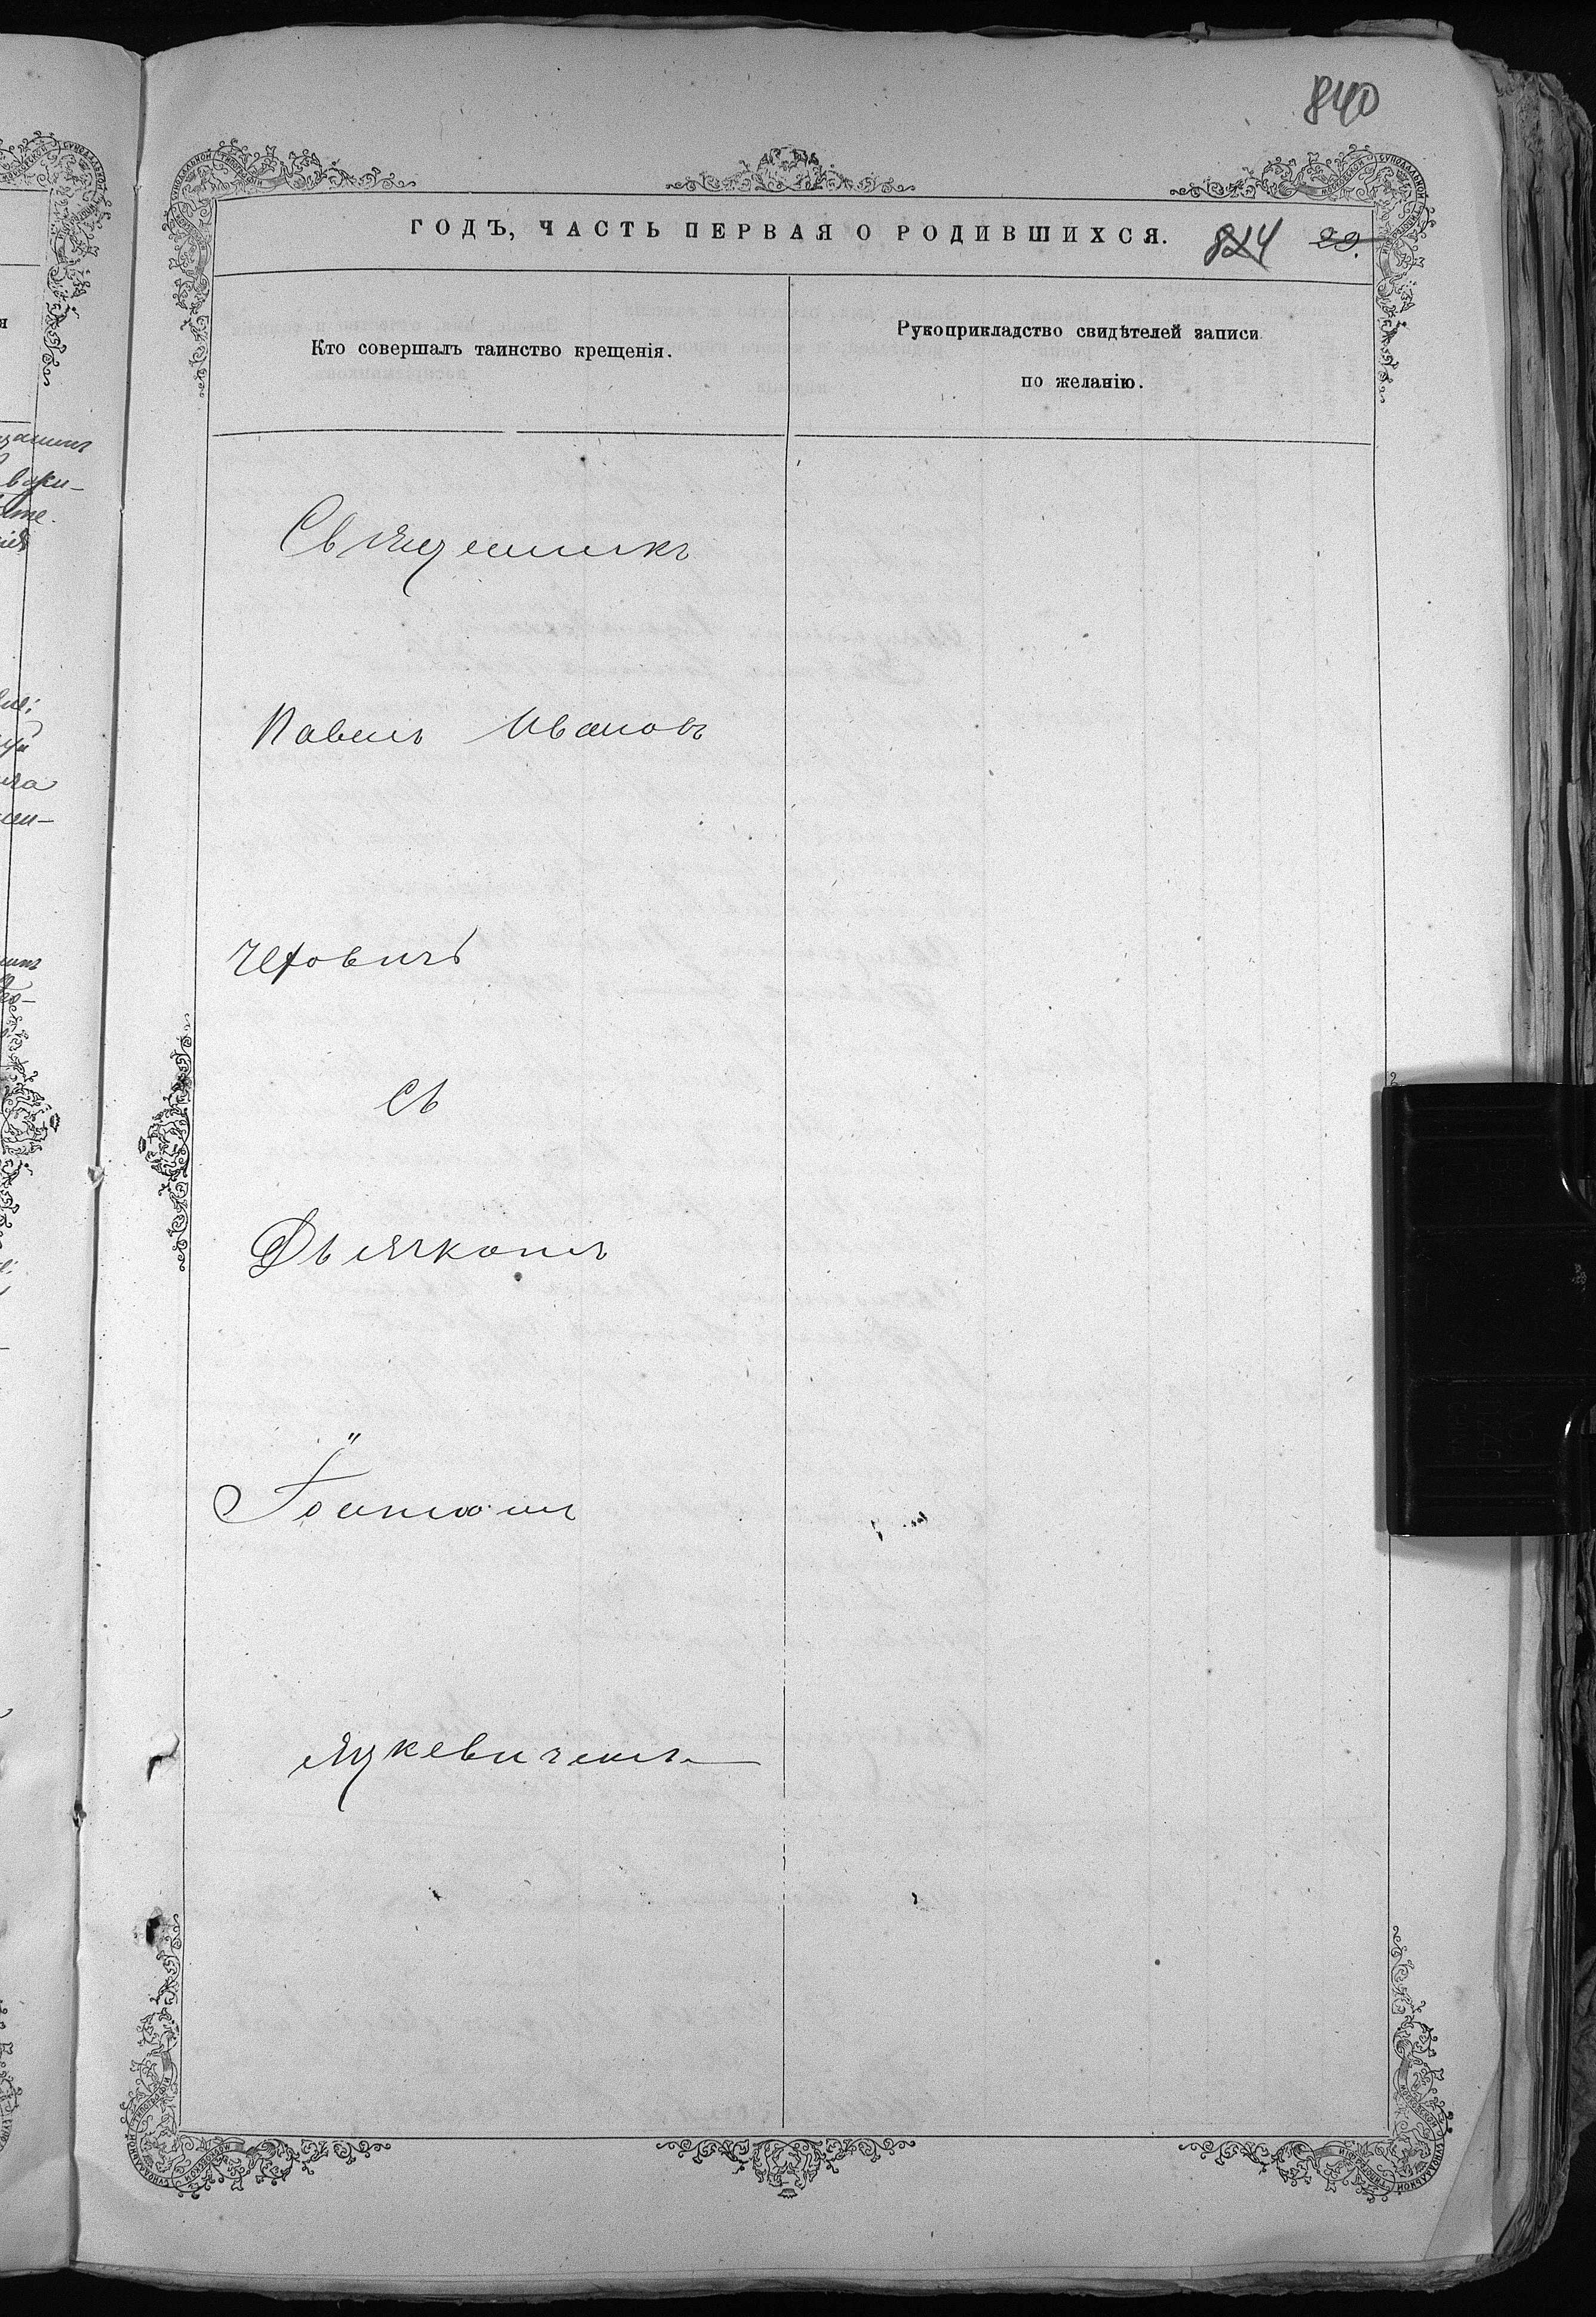 840
ГОДЪ, ЧАСТЬ ПЕРВАЯ О РОДИВШИХСЯ. 824 29.
Кто совершалъ таинство крещенія.
Рукоприкладство свидѣтелей записи
по желанію.
Священникъ
Павелъ Ивановъ
Чеховичъ
съ
Дьячкомъ
Іоанномъ
Яцкевичемъ